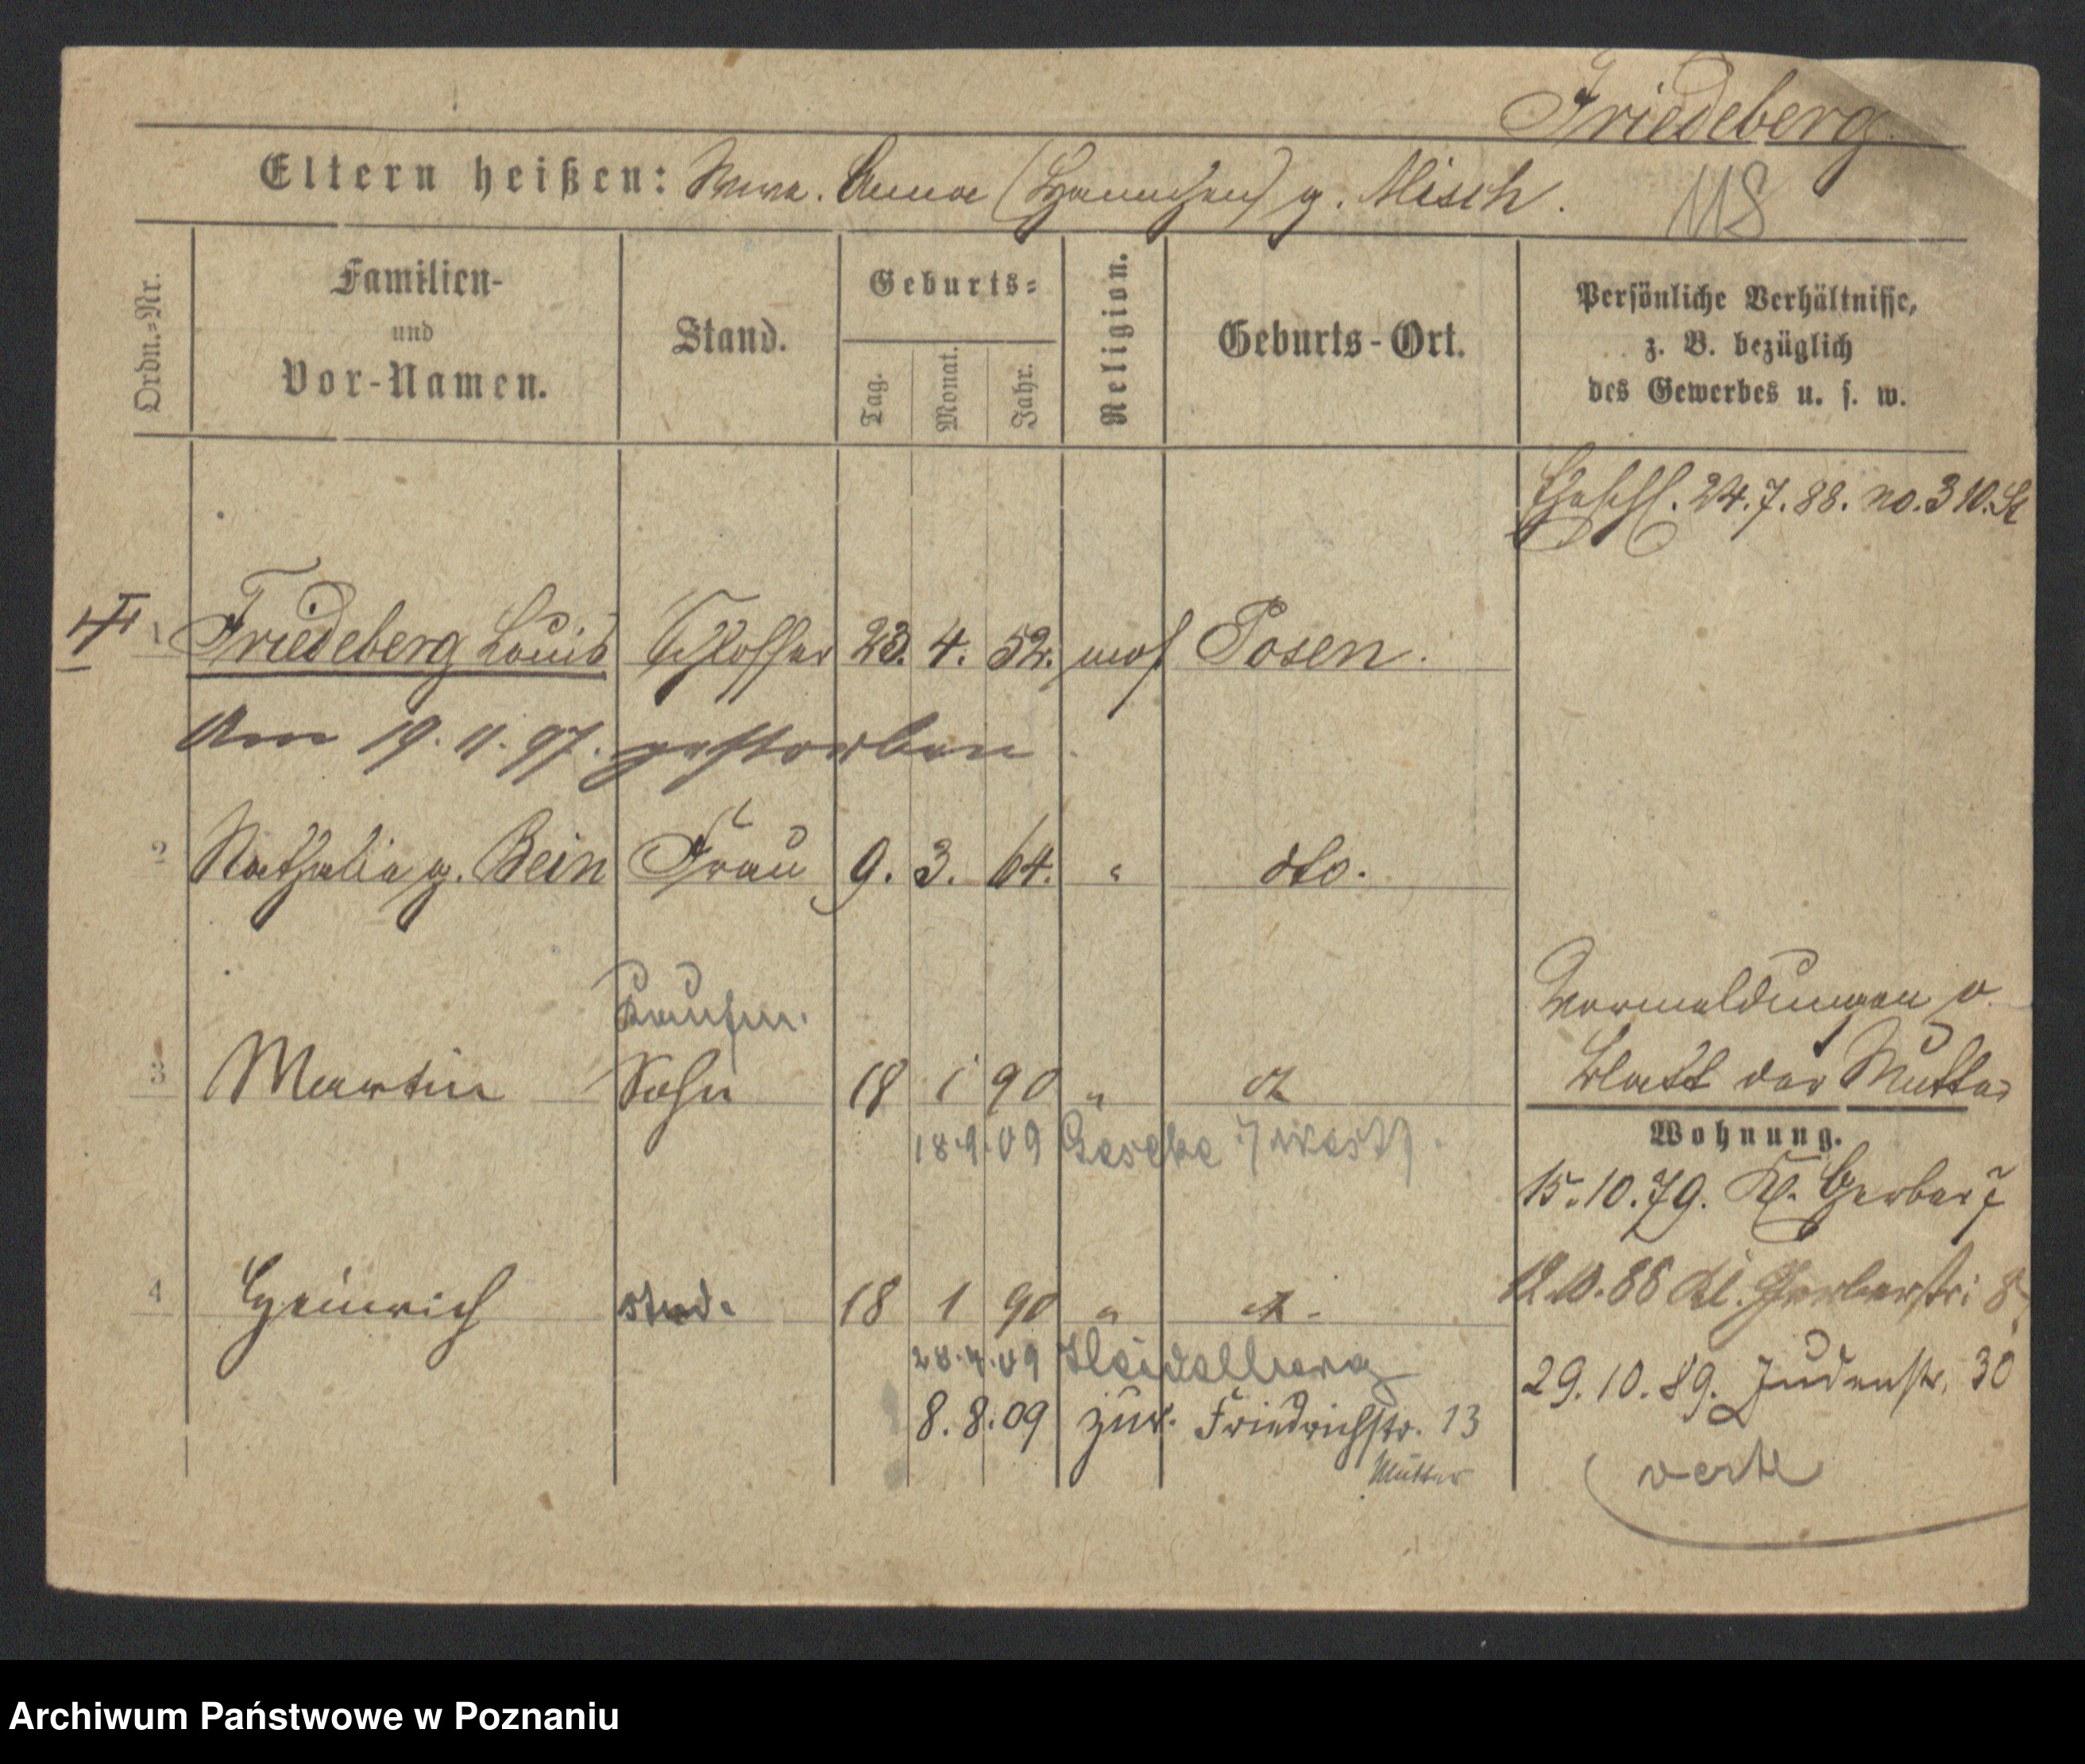 Friedeberg
Eltern heißen: Wwe. Anna (Hannchen) g. Misch.
118
Ordn.=Nr.
Familien-
und
Vor-Namen.
Stand.
Geburts=
Tag.
Monat.
Jahr.
Religion.
Geburts-Ort.
Persönliche Verhältnisse,
z. B. bezüglich
des Gewerbes u. s. w.
Eheschl. 24.7.88. no. 310.
1 Friedeberg Louis Schlosser 23. 4. 52. mos Posen.
Am 19. 11. 97. gestorben
2 Nathalie g. Bein Frau 9. 3. 64. " dto.
Kaufm.
3 Martin Sohn 18 1 90 "
18.9.09
Vormeldungen v.
Blatt der Mutter
Wohnung.
15.10.79. Kl. Gerber 7
12.10.88 Kl. Gerberstr: 8
29.10.89. Judenstr. 30
verte
4 Heinrich stud. 18 1 90 "
28.4.09 Heidelberg
8.8.09 zur. Friedrichstr. 13
Mutter
Archiwum Państwowe w Poznaniu